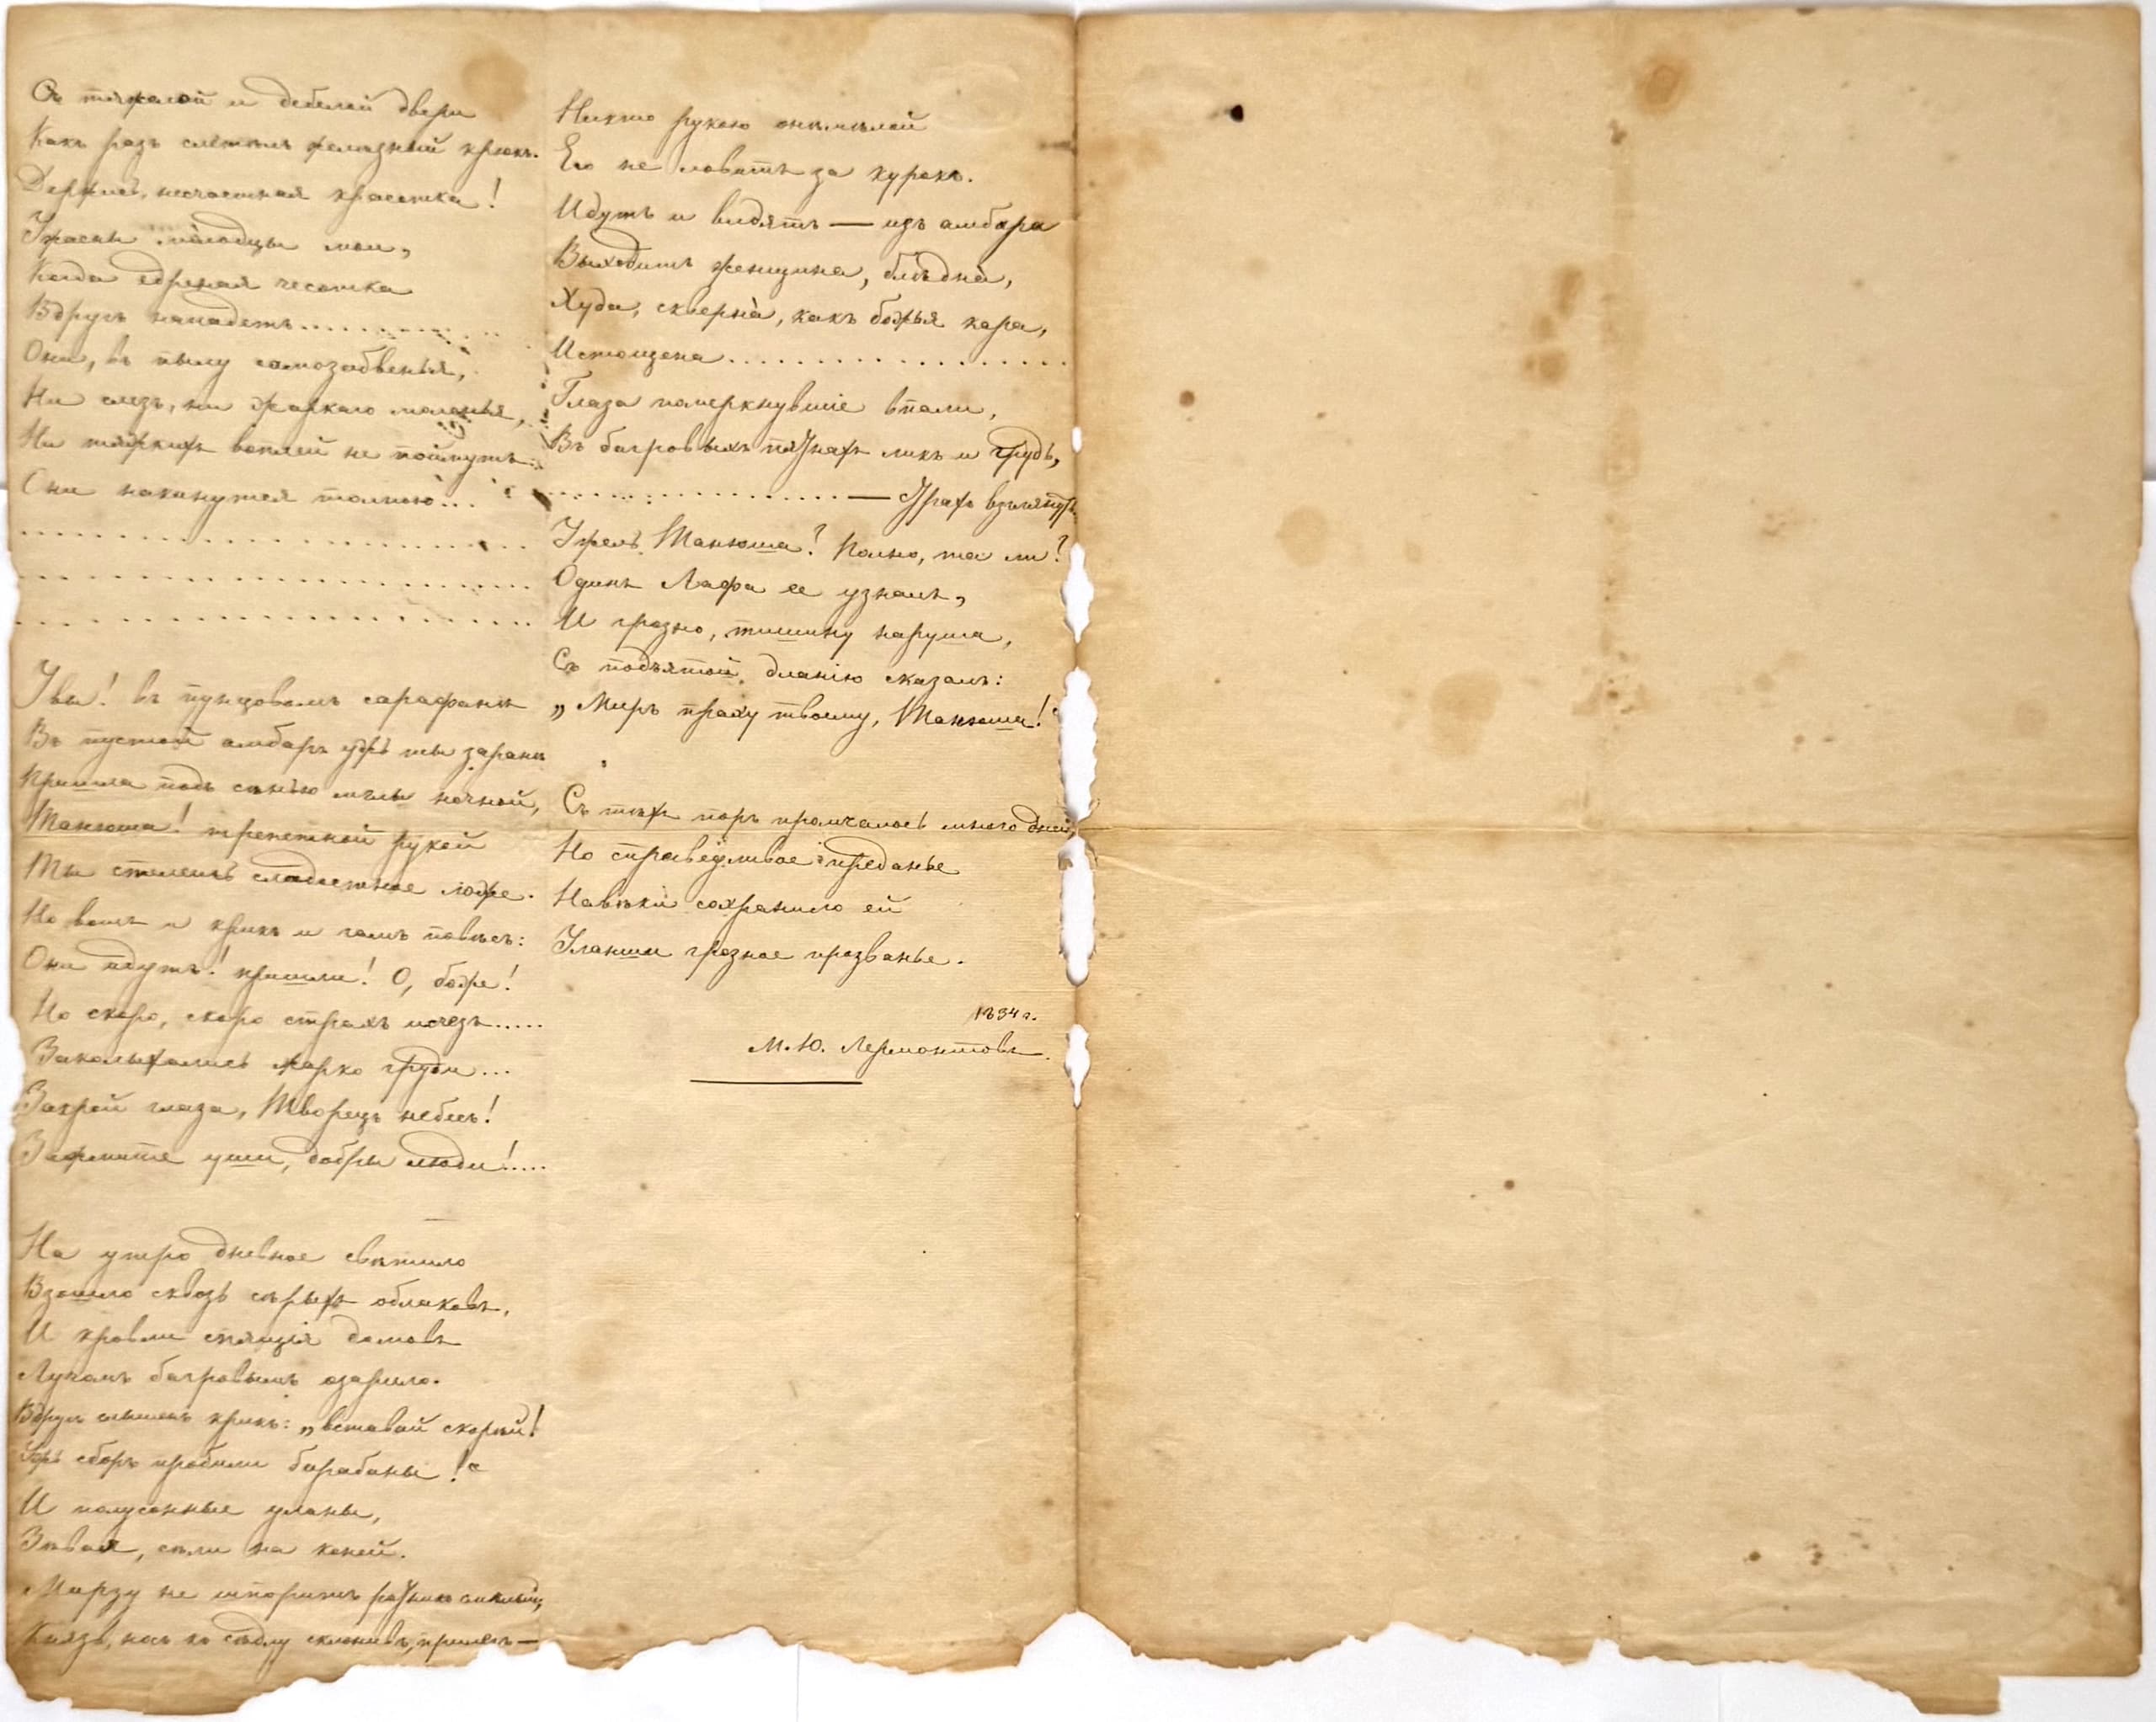 Съ тяжелой и дебелой двери
Какъ разъ слетѣлъ желѣзный крюкъ.
Держись, несчастная красотка!
Ужасны молодцы мои,
Когда ядреная чесотка
Вдругъ нападетъ..............
Они, въ пылу самозабвенья,
Ни слезъ, ни жаркаго моленья,
Ни тяжкихъ воплей не поймутъ:
Они накинутся толпою...
..............................
..............................
..............................
Увы! въ пунцовомъ сарафанѣ
Въ пустой амбаръ ужъ ты заранѣ
Пришла подъ сѣнью мглы ночной,
Танюша! трепетной рукой
Ты стелешь сладостное ложе.
Но вотъ и крикъ и гамъ повѣсъ:
Они идутъ! пришли! О, боже!
Но скоро, скоро страхъ исчезъ.....
Заколыхались жарко груди...
Закрой глаза, Творецъ небесъ!
Зажмите уши, добры люди!.....
На утро дневное свѣтило
Взошло сквозь сѣрыхъ облаковъ,
И кровли спящія домовъ
Лучомъ багровымъ озарило.
Вдругъ слышенъ крикъ: „вставай скорѣй!
Ужъ сборъ пробили барабаны!“
И полусонные уланы,
Зѣвая, сѣли на коней.
Мирзу не шпоритъ Разинъ смѣлый,
Князь, носъ къ сѣдлу склонивъ, прилегъ —
Никто рукою онѣмѣлой
Его не ловитъ за курокъ.
Идутъ и видятъ — изъ амбара
Выходитъ женщина, блѣдна̀,
Худа, скверна̀, какъ божья кара,
Истощена....................
Глаза померкнувшіе впали,
Въ багровыхъ пятнахъ ликъ и грудь,
.................... — Страхъ взглянуть.
Ужель Танюша? Полно, та ли?
Одинъ Лафа ее узналъ,
И грозно, тишину наруша,
Съ подъятой дланію сказалъ:
„Миръ праху твоему, Танюша!“
Съ тѣхъ поръ промчалось много дней
Но справедливое преданье
Навѣки сохранило ей
Уланши грозное прозванье.
1834 г.
М. Ю. Лермонтовъ.